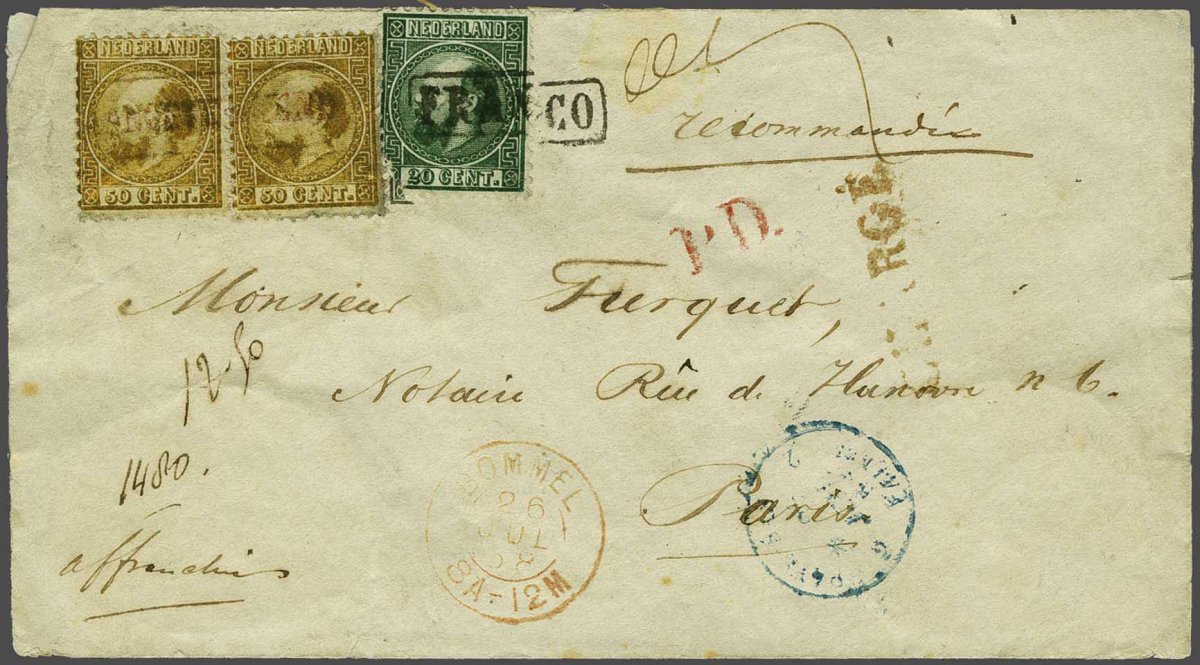 NEDERLAND NEDERLAND NEDERLAND
FRANCO
50 CENT. 50 CENT. 20 CENT.
recommandée
P.D.
RGÉ
Monsieur Furquet,
1250
Notaire Rûe de Hanovre n 6.
1480.
Paris
affranchies
BOMMEL
26
JUL
68
8A-12M
2